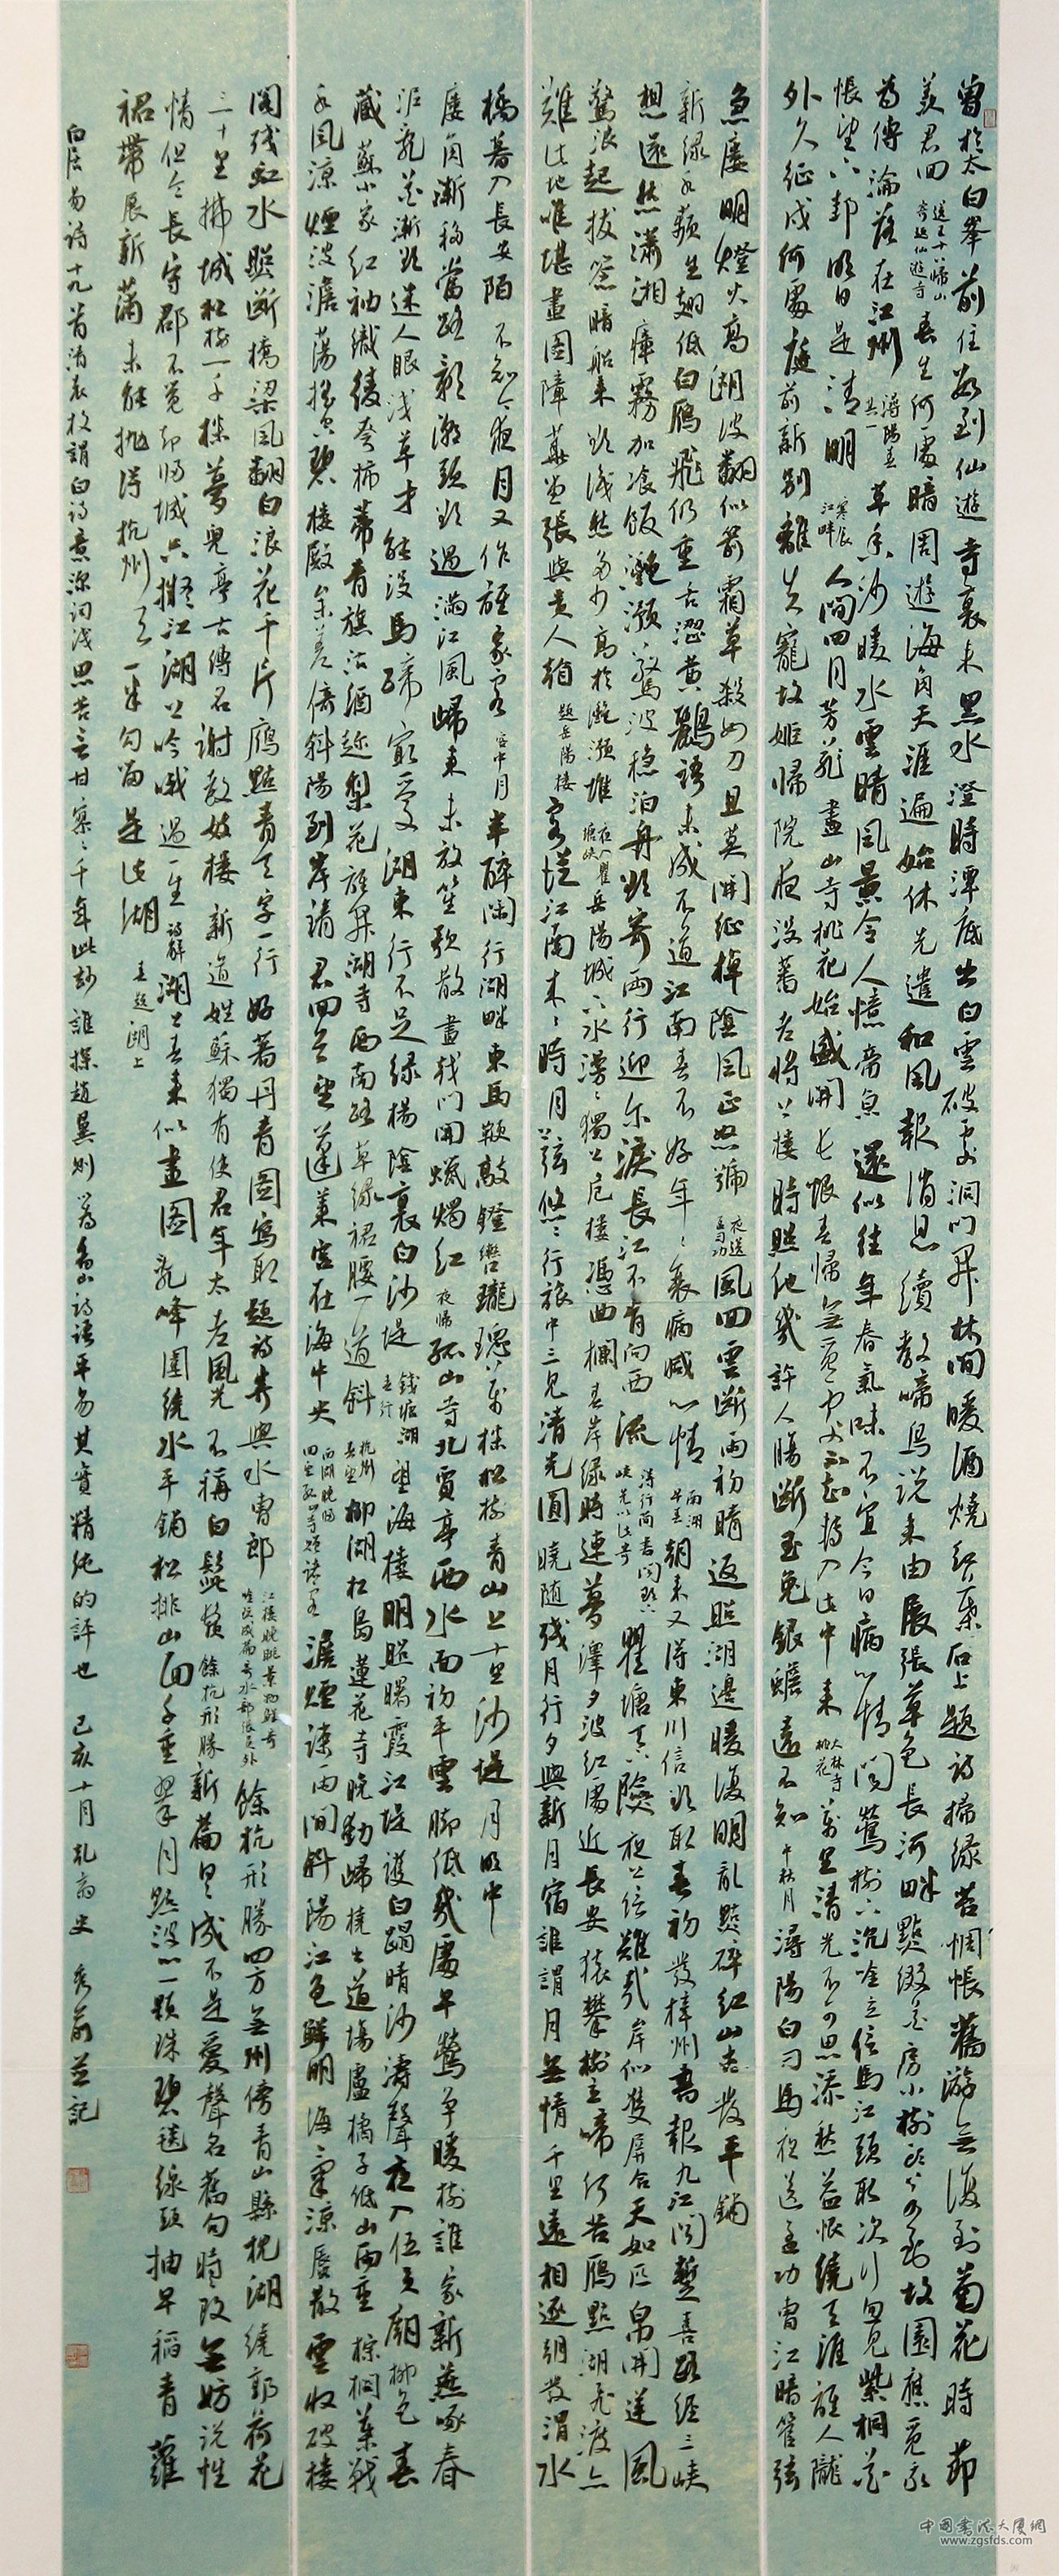 曾於太白峯前住數到仙遊寺裏來黑水澄時潭底出白雲破處洞門開林間暖酒燒紅葉石上題詩掃綠苔惆悵舊游無復到菊花時節
羨君回 送王十八歸山寄題仙遊寺 春生何處暗周遊海角天涯遍始休先遣和風報消息續教啼鳥說來由展張草色長河畔點綴花房小樹頭若到故園應覓我
為傳淪落在江州 潯陽春其一 草香沙暖水雲晴風景令人憶帝京還似往年春氣味不宜今日病心情聞鶯樹下沉吟立信馬江頭取次行忽見紫桐花
悵望下邽明日是清明 寒食江畔 人間四月芳菲盡山寺桃花始盛開長恨春歸無覓處不知轉入此中來 大林寺桃花 萬里清光不可思添愁益恨繞天涯誰人隴
外久征戍何處庭前新別離失寵故姬歸院夜沒蕃老將上樓時照他幾許人腸斷玉兔銀蟾遠不知 中秋月 潯陽白司馬夜送孟功曹江暗管弦
急廔明燈火高湖波翻似箭霜草殺如刀且莫開征棹陰風正怒號 夜送孟司功 風回雲斷雨初晴返照湖邊暖復明亂點碎紅山杏發平鋪
新綠水蘋生翅低白鴈飛仍重舌澀黃鸝語未成不道江南春不好年々衰病減心情 南湖早春 朝來又得東川信欲取春初發梓州書報九江聞暫喜路經三峽
想還愁瀟湘瘴霧加飱飯灩澦驚波穩泊舟欲寄兩行迎尔淚長江不肯向西流 得行簡書聞欲下峽先以此寄 瞿塘天下險夜上信難哉岸似雙屏合天如匹帛開逆風
驚浪起拔䈝暗船來欲識愁多少高於灩澦堆 夜入瞿塘峽 岳陽城下水漫々獨上危樓憑曲欄春岸綠時連夢澤夕波紅處近長安猿攀樹立啼何苦鴈點湖飛渡亦
難此地唯堪畫圖障華堂張與貴人看 題岳陽樓 客從江南來々時月上弦悠々行旅中三見清光圓曉隨殘月行夕與新月宿誰謂月無情千里遠相逐朝發渭水
橋暮入長安陌不知今夜月又作誰家客 客中月 半醉閑行湖畔東馬鞭敲鐙轡瓏璁萬株松樹青山上十里沙堤月明中
廔角漸移當路影潮頭欲過滿江風歸來未放笙歌散畫戟門開蠟燭紅 夜歸 孤山寺北賈亭西水面初平雲腳低幾處早鶯爭暖樹誰家新燕啄春
泥亂花漸欲迷人眼淺草才能沒馬蹄最愛湖東行不足綠楊陰裏白沙堤 錢塘湖春行 望海樓明照曙霞江堤護白蹋晴沙濤聲夜入伍員廟柳色春
藏蘇小家紅袖織綾夸柿蒂青旗沽酒趁梨花誰開湖寺西南路草綠裙腰一道斜 杭州春望 柳湖松島蓮花寺晚動歸橈出道場盧橘子低山雨重棕櫚葉戰
水風涼煙波澹蕩搖空碧樓殿參差倚斜陽到岸請君回首望蓬萊宮在海中央 西湖晚歸回望孤山寺贈諸客 澹煙疎雨間斜陽江色鮮明海氣涼蜃散雲收破樓
閣殘虹水照斷橋梁風翻白浪花千片鴈點青天字一行好著丹青圖寫取題詩寄與水曹郎 江樓晚眺景物鮮奇吟玩成篇寄水部張員外 餘杭形勝四方無州傍青山縣枕湖繞郭荷花
三十里拂城松樹一千株夢兒亭古傳名謝教妓樓新道姓蘇獨有使君年太老風光不稱白髭鬚 餘杭形勝 新篇日々成不是愛聲名舊句時々改無妨說性
情但令長守郡不覺卻歸城只擬江湖上吟哦過一生 詩解 湖上春來似畫圖亂峰圍繞水平鋪松排山面千重翠月點波心一顆珠碧毯線頭抽早稻青蘿
裙帶展新蒲未能拋得杭州去一半勾留是此湖 春題湖上
白居易詩十九首清袁枚謂白詩意深詞淺思苦言甘寥々千年此妙誰探趙翼則前香山詩語平易其實精純的評也 己亥十月 並記
中國書法大厦網
www.zgsfds.com